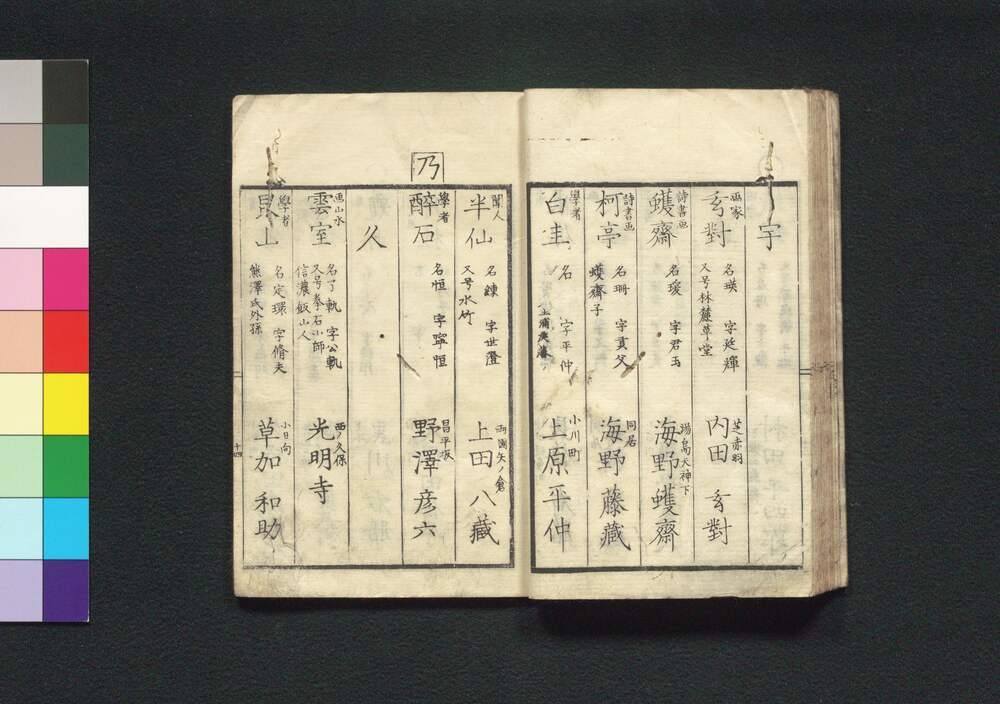 宇
画家
玄對
名瑛 字延輝
又号林麓草堂
芝赤羽
内田 玄對
詩書画
蠖齋
名瑗 字君玉
湯島天神下
海野蠖齋
詩書画
柯亭
名珊 字貢父
蠖齋子
同居
海野藤藏
學者
白圭
名 字平仲
土浦侯藩
小川町
上原平仲
聞人
半仙
名錬 字世澄
又号水竹
両国矢ノ倉
上田 八藏
乃
學者
醉石
名恒 字寧恒
昌平坂
野澤彦六
久
画山水
雲室
名了軌 字公軌
又号拳石小師
信濃飯山人
西ノ久保
光明寺
學者
山
名定環 字脩夫
熊澤氏外孫
小日向
草加 和助
十四